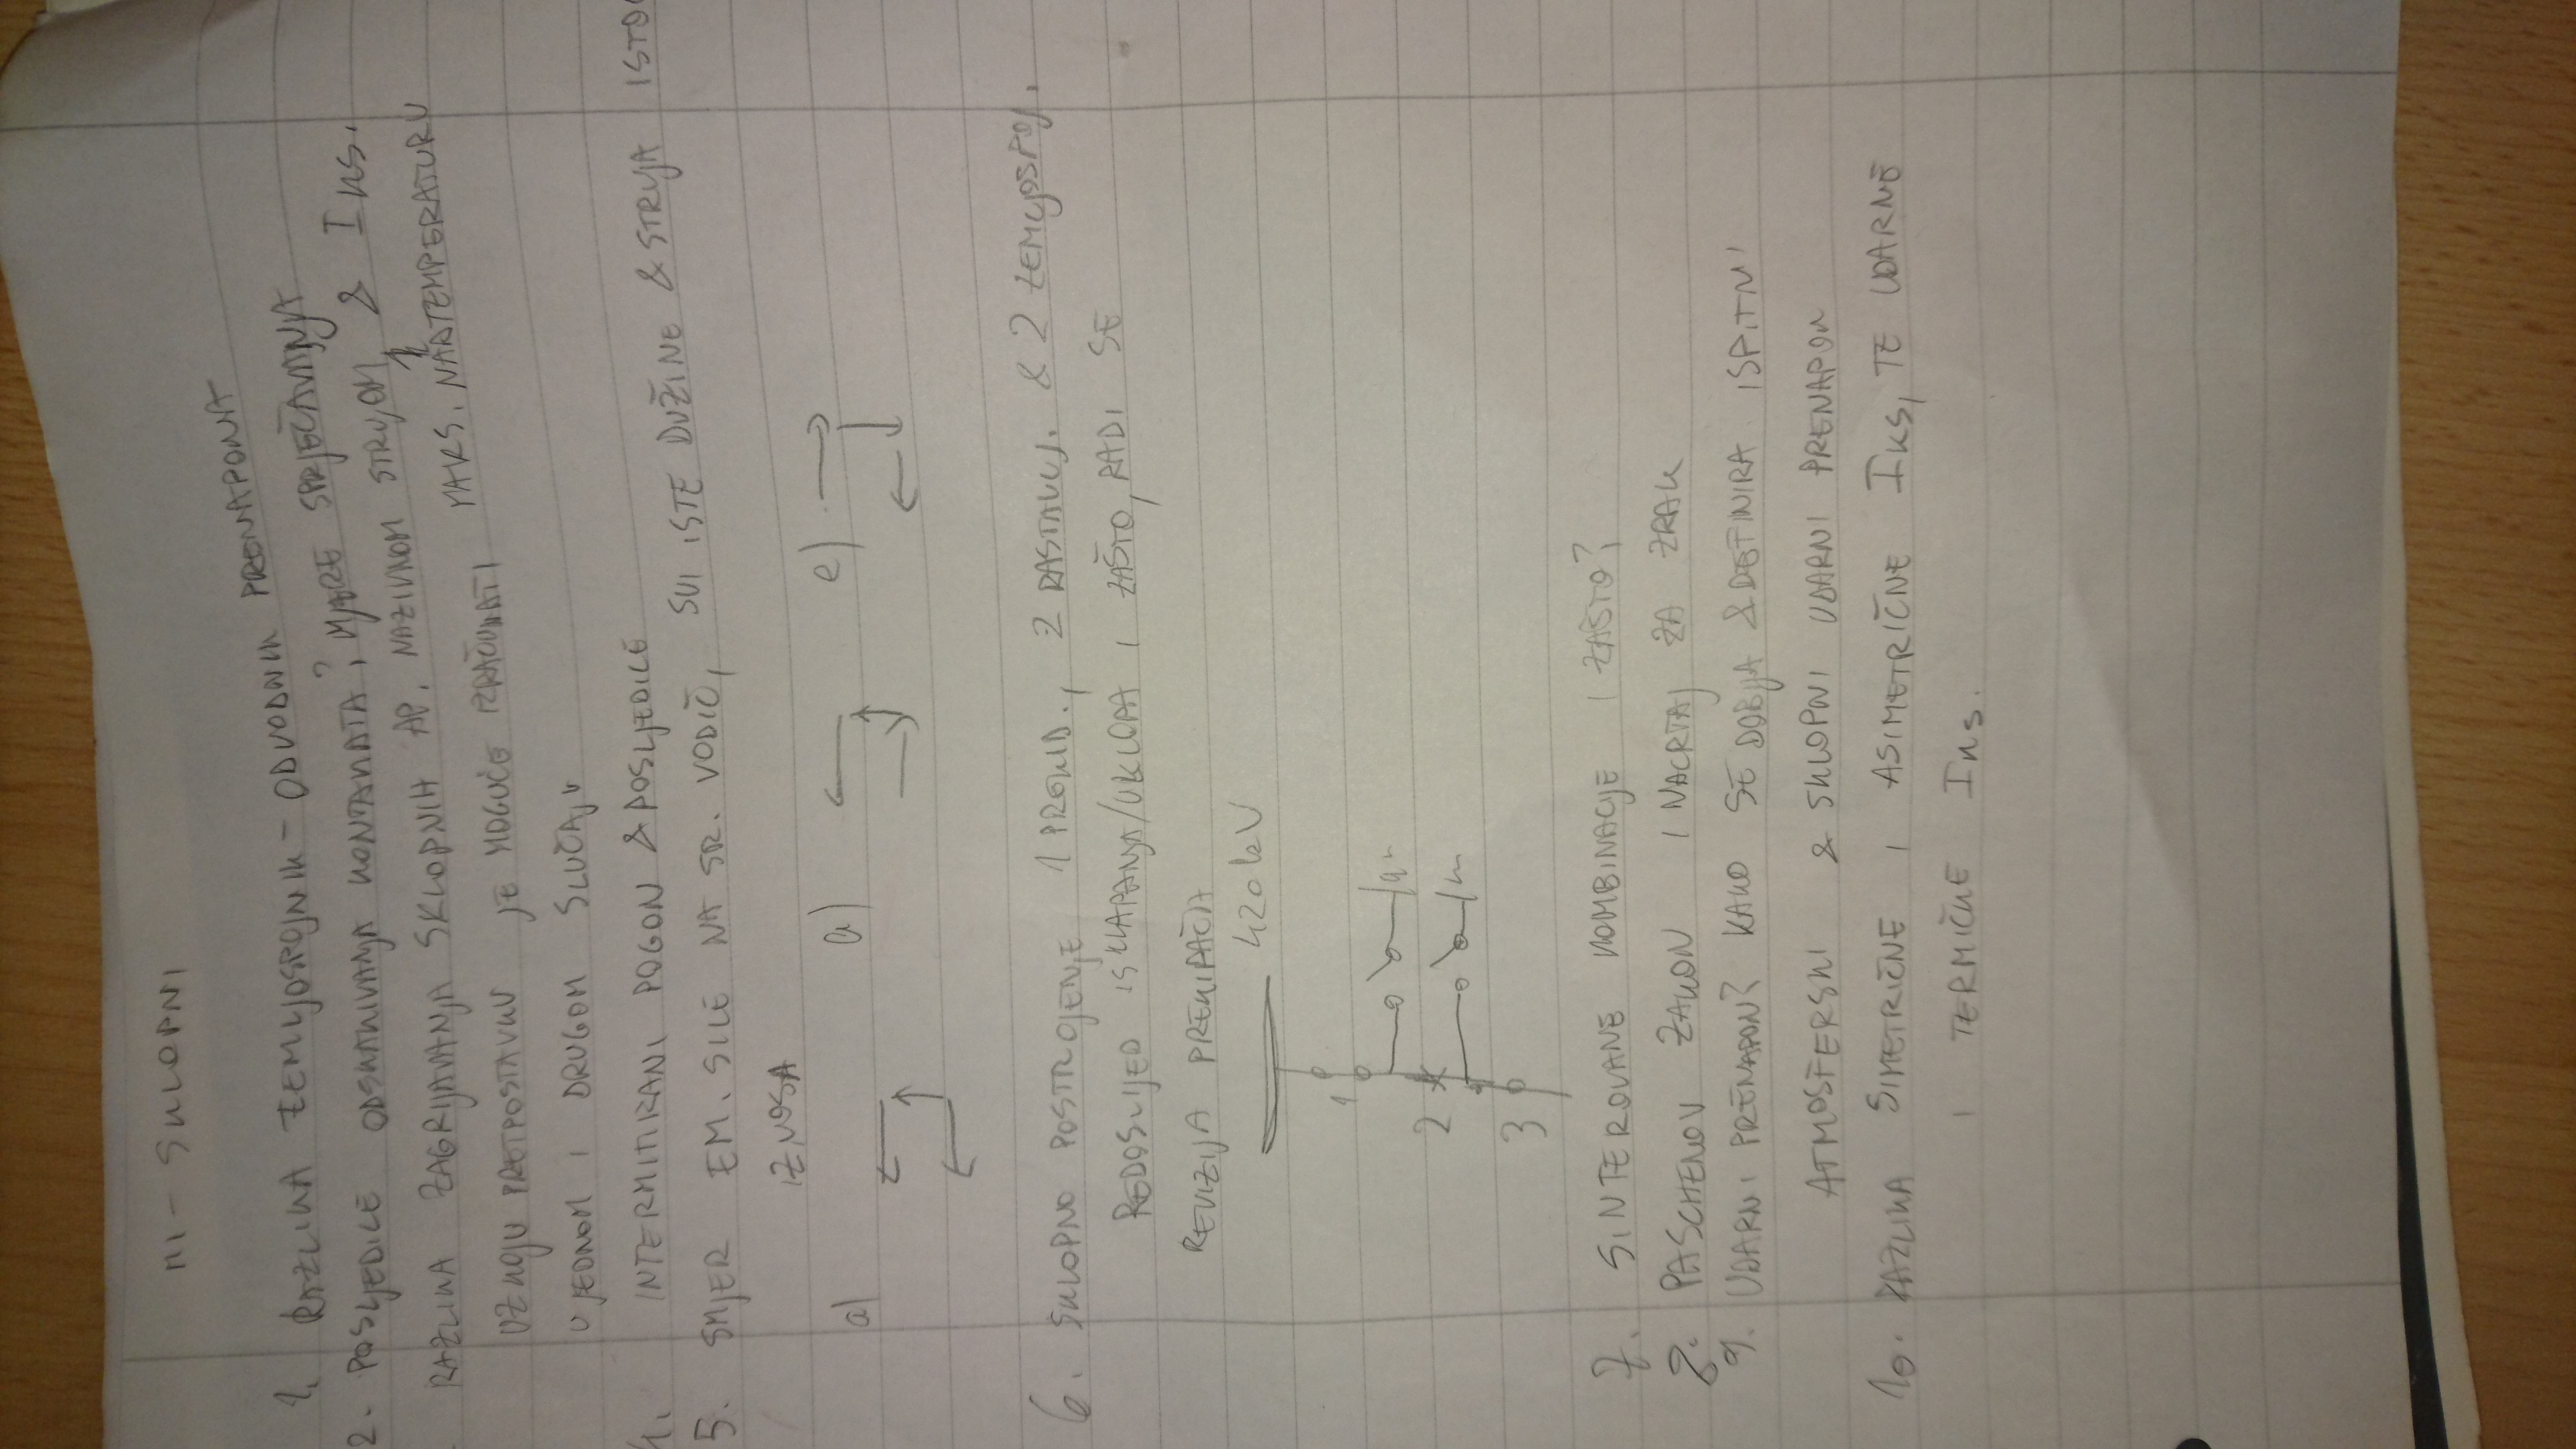 MI - SKLOPNI
1. RAZLIKA ZEMLJOSPOJNIK - ODVODNIK PRENAPONA
2. POSLJEDICE ODSKAKIVANJA KONTAKATA?, MJERE SPRJEČAVANJA
RAZLIKA ZAGRIJAVANJA SKLOPNIH AP. NAZIVNOM STRUJOM & Iks.
UZ KOJU PRETPOSTAVKU JE MOGUĆE IZRAČUNATI MAKS. NADTEMPERATURU
U JEDNOM I DRUGOM SLUČAJU
4. INTERMITIRANI POGON & POSLJEDICE
5. SMJER EM. SILE NA SR. VODIČ, SVI ISTE DUŽINE & STRUJA ISTOG
IZNOSA
a) a) e)
6. SKLOPNO POSTROJENJE 1 PREKID., 2 RASTAVLJ. & 2 ZEMLJOSPOJ.
REDOSLIJED ISKLAPANJA/UKLOPA I ZAŠTO, RADI SE
REVIZIJA PREKIDAČA
420 kV
1
2
3
7. SINTEROVANE KOMBINACIJE I ZAŠTO?
8. PASCHENOV ZAKON I NACRTAJ ZA ZRAK
9. UDARNI PRENAPON? KAKO SE DOBIJA & DEFINIRA ISPITNI
ATMOSFERSKI & SKLOPNI UDARNI PRENAPON
10. RAZLIKA SIMETRIČNE I ASIMETRIČNE Iks, TE UDARNE
I TERMIČKE Iks.